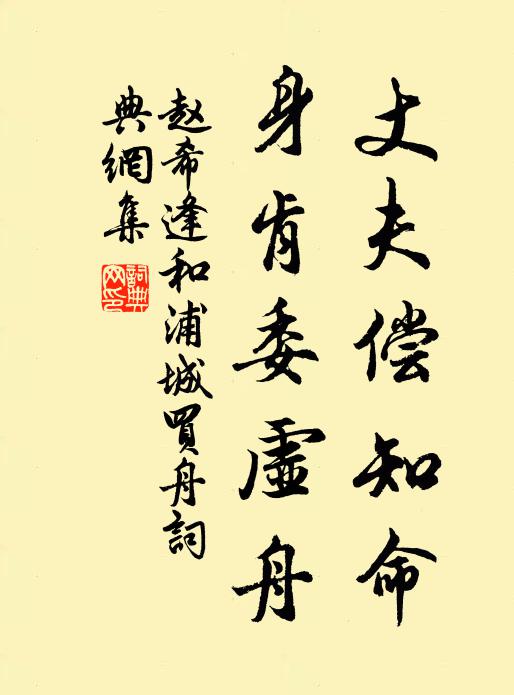 丈夫偿知命
身肯委虚舟
赵希逢和浦城買舟詞
典網集
詞典网印